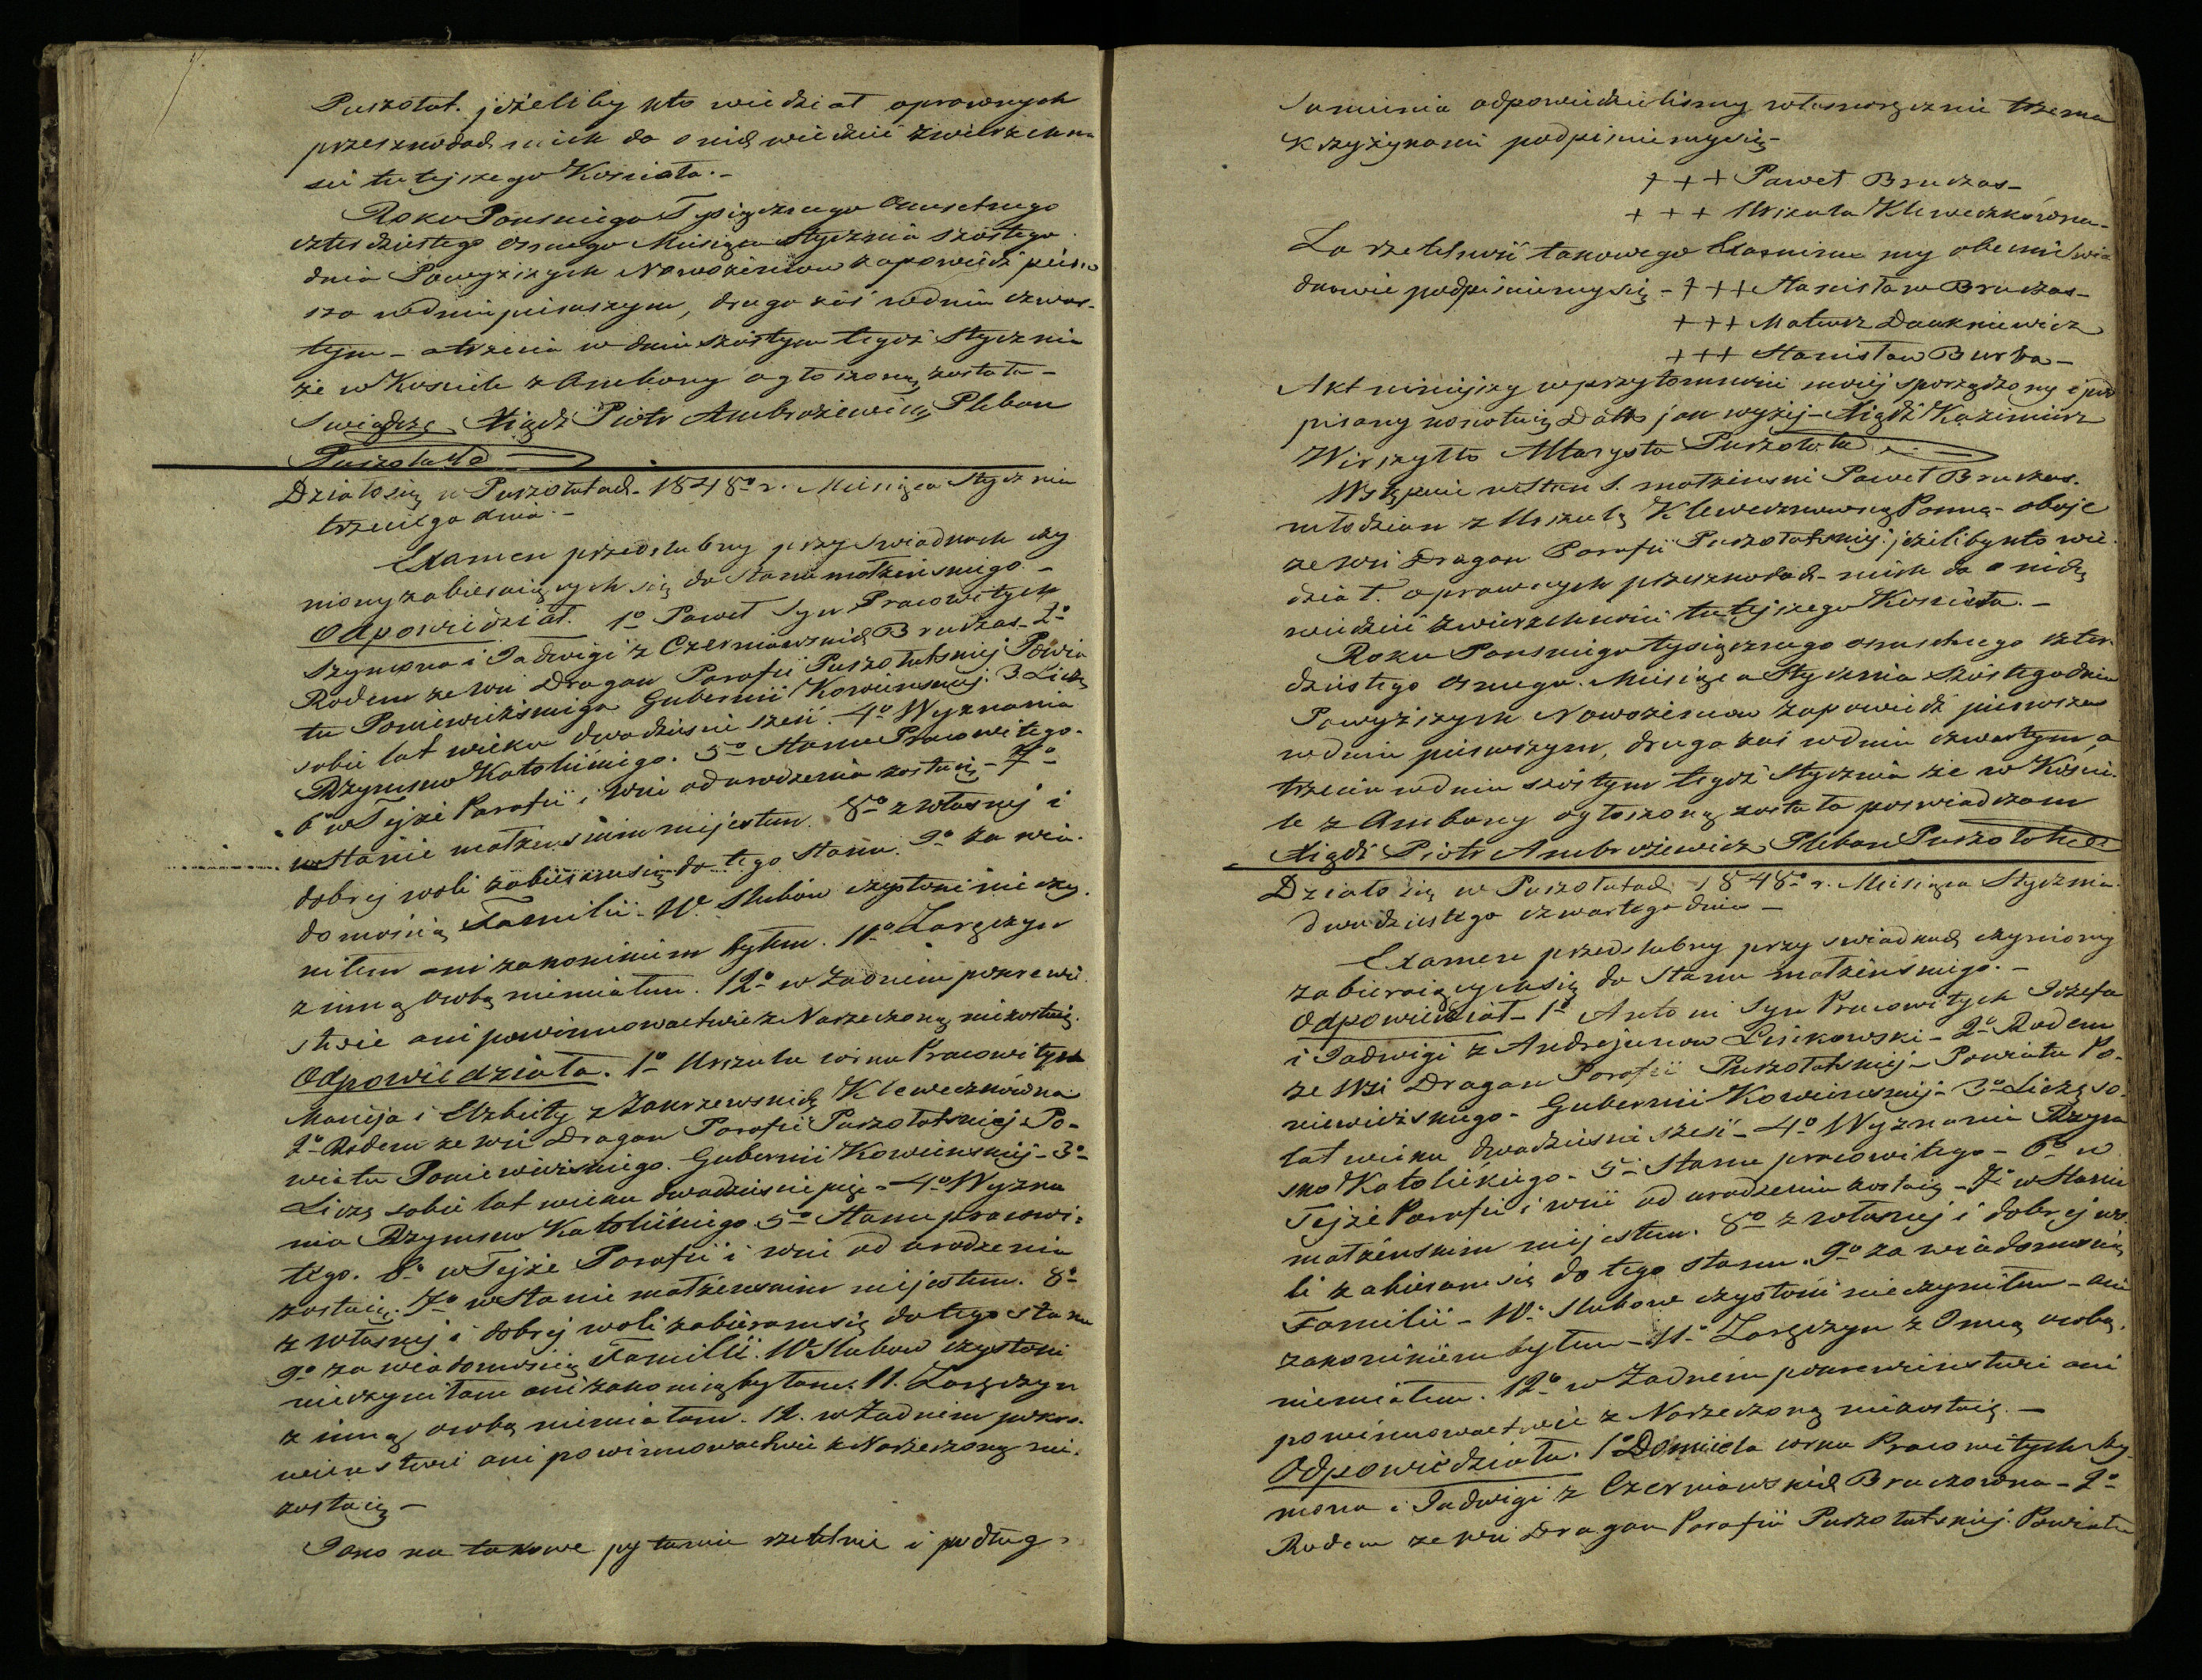 Puszołat. jeżeliby kto wiedział oprawnych
przeszkodach niech da o nich wiedzieć zwierzchno
sci tutejszego Koscioła.-
Roku Panskiego Tysiącznego Osmsetnego
czterdziestego osmego Miesiąca Stycznia szóstego
dnia Powyższych Nowożencow zapowiedź pierw
sza wdniu pierwszym, druga zaś wdniu czwar-
tym - a trzecia w dniu szóstym tegoż Stycznia
że w Kosciele z Ambony ogłoszoną została -
Swiadczę Xiądz Piotr Ambrożewicz Pleban
Puszołatski
Działo się w Puszołatach 1848º r. Miesiąca Stycznia
trzeciego dnia.-
Examen przedslubny przy swiadkach czy
niony zabieraiących się do Stanu małżeńskiego.-
Odpowiedział. 1º Paweł Syn Pracowitych
Szymona i Jadwigi z Czerniawskich Bruczas - 2º
Rodem ze wsi Dragan Parafii Puszołatskiej Powia
tu Poniewieżskiego Gubernii Kowienskiej. 3. Liczę
sobie lat wieku dwadziescie szesć. 4º Wyznania
Rzymsko Katolickiego. 5º Stanu Pracowitego.
6º w Tejże Parafii i wsi od urodzenia zostaię - 7º
w Stanie małżenskim niejestem. 8º z własnej i
dobrej woli zabieramsię do tego stanu. 9º za wia-
domoscią Familii. 10. Slubów czystosci nieczy-
niłem ani zakonnikiem byłem. 11º Zaręczyn
z inną osobą niemiałem. 12º w żadnem pokrewień
stwie ani powinnowactwie z Narzeczoną niezostaię.
Odpowiedziała. 1º Urszula córka Pracowitych
Macieja i Elzbiety z Zakrzewskich Kleweczkówna
2º Rodem ze wsi Dragan Parafii Puszołatskiej Po-
wiatu Poniewieżskiego. Gubernii Kowienskiej - 3º
Liczę sobie lat wieku dwadziescie pięć - 4º Wyzna
nia Rzymsko Katolickiego. 5º Stanu pracowi-
tego. 6º w Tejże Parafii i wsi od urodzenia
zostaię. 7º w Stanie małżenskim niejestem. 8º
z własnej i dobrej woli zabieramsię do tego stanu
9º za wiadomoscią Familii. 10 Slubow czystosci
nieczyniłam ani zakonnicą byłam. 11. Zaręczyn
z inną osobą niemiałam. 12. w żadnem pokre-
wienstwie ani powinnowactwie z Narzeczonym nie-
zostaię -
Jako na takowe pytania rzetelnie i podług
sumienia odpowiedzielismy własnoręcznie trzema
krzyżykami podpisuiemysię-
+ + + Paweł Bruczas-
+ + + Urszula Klewczkówna-
Za rzetelność takowego Examinu my obecni Swia
dkowie podpisuiemysię - +++ Stanisław Bruczas-
+++ Mateusz Daukniewicz
+++ Stanisław Burba -
Akt niniejszy wprzytomności mojej sporządzony i pod
pisany Data jak wyżej - Xiądz Kazimierz
Wirszyłło Altarysta Puszołatski
Wstępuie wStan S. małżenski Paweł Bruczas.
młodzian z Urszulą Klewecznowną Panną - oboje
ze wsi Dragan Parafii Puszołatskiej. jeżeliby kto wie
dział. oprawnych przeszkodach - niech da o nich
wiedzieć zwierzchności tutejszego Koscioła. -
Roku Panskiego tysiącznego osmsetnego czter
dziestego osmego. Miesiąca Stycznia szóstego dnia
Powyższych Nowożencow zapowiedź pierwsza
wdniu pierwszym, druga zaś wdniu czwartym, a
trzecia wdniu szóstym tegoż Stycznia że w Koscie-
le z Ambony ogłoszoną została poswiadczam
Xiądz Piotr Ambrożewicz Pleban Puszołatski
Działo się w Puszołatach 1848º r. Miesiąca Stycznia
dwudziestego czwartego dnia -
Examen przedslubny przy swiadkach czyniony
zabieraiącychsię do Stanu małżeńskiego. -
Odpowiedział - 1º Antoni Syn Pracowitych Jozefa
i Jadwigi z Andrejunow Lisikowski - 2º Rodem
ze Wsi Dragan Parafii Puszołatskiej - Powiatu Po-
niewieżskiego - Gubernii Kowienskiej - 3º Liczę so
lat wieku dwadziescie szesć - 4º Wyznania Rzym
sko Katolickiego - 5º Stanu pracowitego - 6º w
Tejże Parafii i wsi od urodzenia zostaię - 7º w Stanie
małżeńskim niejestem. 8º z własnej i dobrej wo
li zabieramsię do tego stanu. 9º za wiadomoscią
Familii - 10. Slubow czystosci nieczyniłem - ani
zakonnikiem byłem - 11º Zaręczyn z Inną osobą.
niemiałem. 12º w Żadnem pokrewieństwie ani
powinnowactwie z Narzeczoną niezostaię. -
Odpowiedziała. 1º Domicela córka Pracowitych Szy-
mona i Jadwigi z Czerniawskich Bruczowna - 2º
Rodem ze wsi Dragan Parafii Puszołatskiej. Powiatu